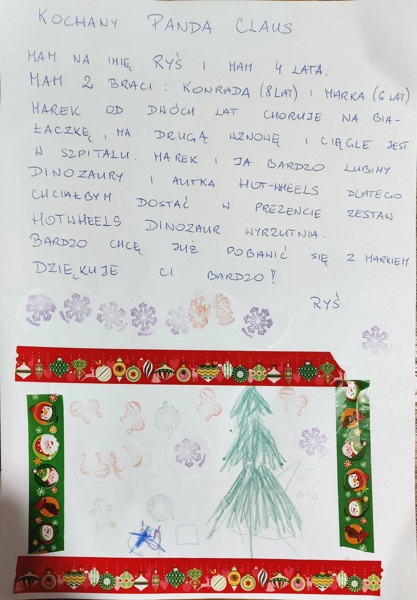 KOCHANY PANDA CLAUS
MAM NA IMIĘ RYŚ I MAM 4 LATA.
MAM 2 BRACI: KONRADA (8 LAT) I MARKA (6 LAT)
MAREK OD DWÓCH LAT CHORUJE NA BIA-
ŁACZKĘ, MA DRUGĄ WZNOWĘ I CIĄGLE JEST
W SZPITALU. MAREK I JA BARDZO LUBIMY
DINOZAURY I AUTKA HOT-WHEELS DLATEGO
CHCIAŁBYM DOSTAĆ W PREZENCIE ZESTAW
HOTWHEELS DINOZAUR WYRZUTNIA.
BARDZO CHCĘ JUŻ POBAWIĆ SIĘ Z MARKIEM
DZIĘKUJE CI BARDZO!
RYŚ